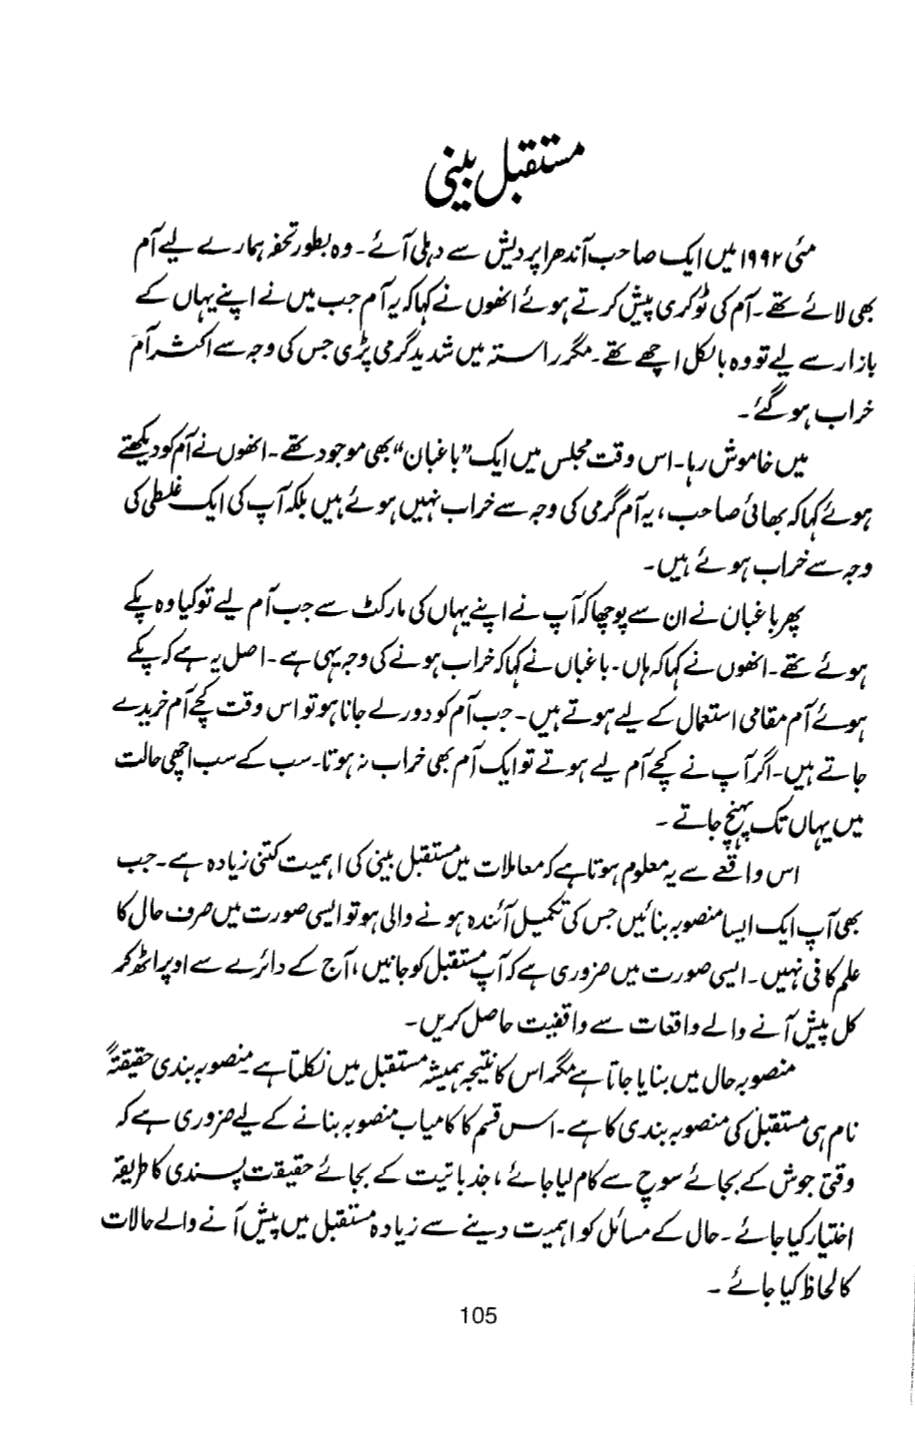 مستقبل بینی
مئی ۱۹۹۲ میں ایک صاحب آندھرا پردیش سے دہلی آئے۔ وہ بطور تحفہ ہمارے لیے آم
بھی لائے تھے۔ آم کی ٹوکری پیش کرتے ہوئے انھوں نے کہا کہ یہ آم جب میں نے اپنے یہاں کے
بازار سے لیے تو وہ بالکل اچھے تھے۔ مگر راستہ میں شدید گرمی پڑی جس کی وجہ سے اکثر آم
خراب ہو گئے۔
میں خاموش رہا۔ اس وقت مجلس میں ایک "باغبان" بھی موجود تھے۔ انھوں نے آم کو دیکھتے
ہوئے کہا کہ بھائی صاحب، یہ آم گرمی کی وجہ سے خراب نہیں ہوئے ہیں بلکہ آپ کی ایک غلطی کی
وجہ سے خراب ہوئے ہیں۔
پھر باغبان نے ان سے پوچھا کہ آپ نے اپنے یہاں کی مارکٹ سے جب آم لیے تو کیا وہ پکے
ہوئے تھے۔ انھوں نے کہا کہ ہاں۔ باغباں نے کہا کہ خراب ہونے کی وجہ یہی ہے۔ اصل یہ ہے کہ پکے
ہوئے آم مقامی استعمال کے لیے ہوتے ہیں۔ جب آم کو دور لے جانا ہو تو اس وقت کچے آم خریدے
جاتے ہیں۔ اگر آپ نے کچے آم لیے ہوتے تو ایک آم بھی خراب نہ ہوتا۔ سب کے سب اچھی حالت
میں یہاں تک پہنچ جاتے۔
اس واقعے سے یہ معلوم ہوتا ہے کہ معاملات میں مستقبل بینی کی اہمیت کتنی زیادہ ہے۔ جب
بھی آپ ایک ایسا منصوبہ بنائیں جس کی تکمیل آئندہ ہونے والی ہو تو ایسی صورت میں صرف حال کا
علم کافی نہیں۔ ایسی صورت میں ضروری ہے کہ آپ مستقبل کو جانیں، آج کے دائرے سے اوپر اٹھ کر
کل پیش آنے والے واقعات سے واقفیت حاصل کریں۔
منصوبہ حال میں بنایا جاتا ہے مگر اس کا نتیجہ ہمیشہ مستقبل میں نکلتا ہے۔ منصوبہ بندی حقیقتہً
نام ہی مستقبل کی منصوبہ بندی کا ہے۔ اس قسم کا کامیاب منصوبہ بنانے کے لیے ضروری ہے کہ
وقتی جوش کے بجائے سوچ سے کام لیا جائے، جذباتیت کے بجائے حقیقت پسندی کا طریقہ
اختیار کیا جائے۔ حال کے مسائل کو اہمیت دینے سے زیادہ مستقبل میں پیش آنے والے حالات
کا لحاظ کیا جائے۔
105